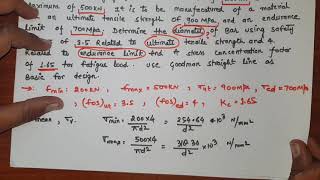 Maximum of 500kN. It is to be manufactured of a material
an ultimate tensile strength of 900 MPa and an endurance
Limit of 700MPa. Determine the diameter of Bar using safety
of 3.5 Related to ultimate tensile strength and 4
Related to endurance Limit and a stress concentration factor
of 1.65 for fatigue load. use goodman straight line as
Basic for design.
→ fmin = 200KN, fmax = 500KN, σut = 900, σed = 700MPa
(fos)ut = 3.5, (fos)ed = 4, Kt = 1.65
mean, σv. σmin = 200×4/πd² = 254.64/d² ×10³ N/mm²
σmax = 500×4/πd² = ×10³ N/mm²